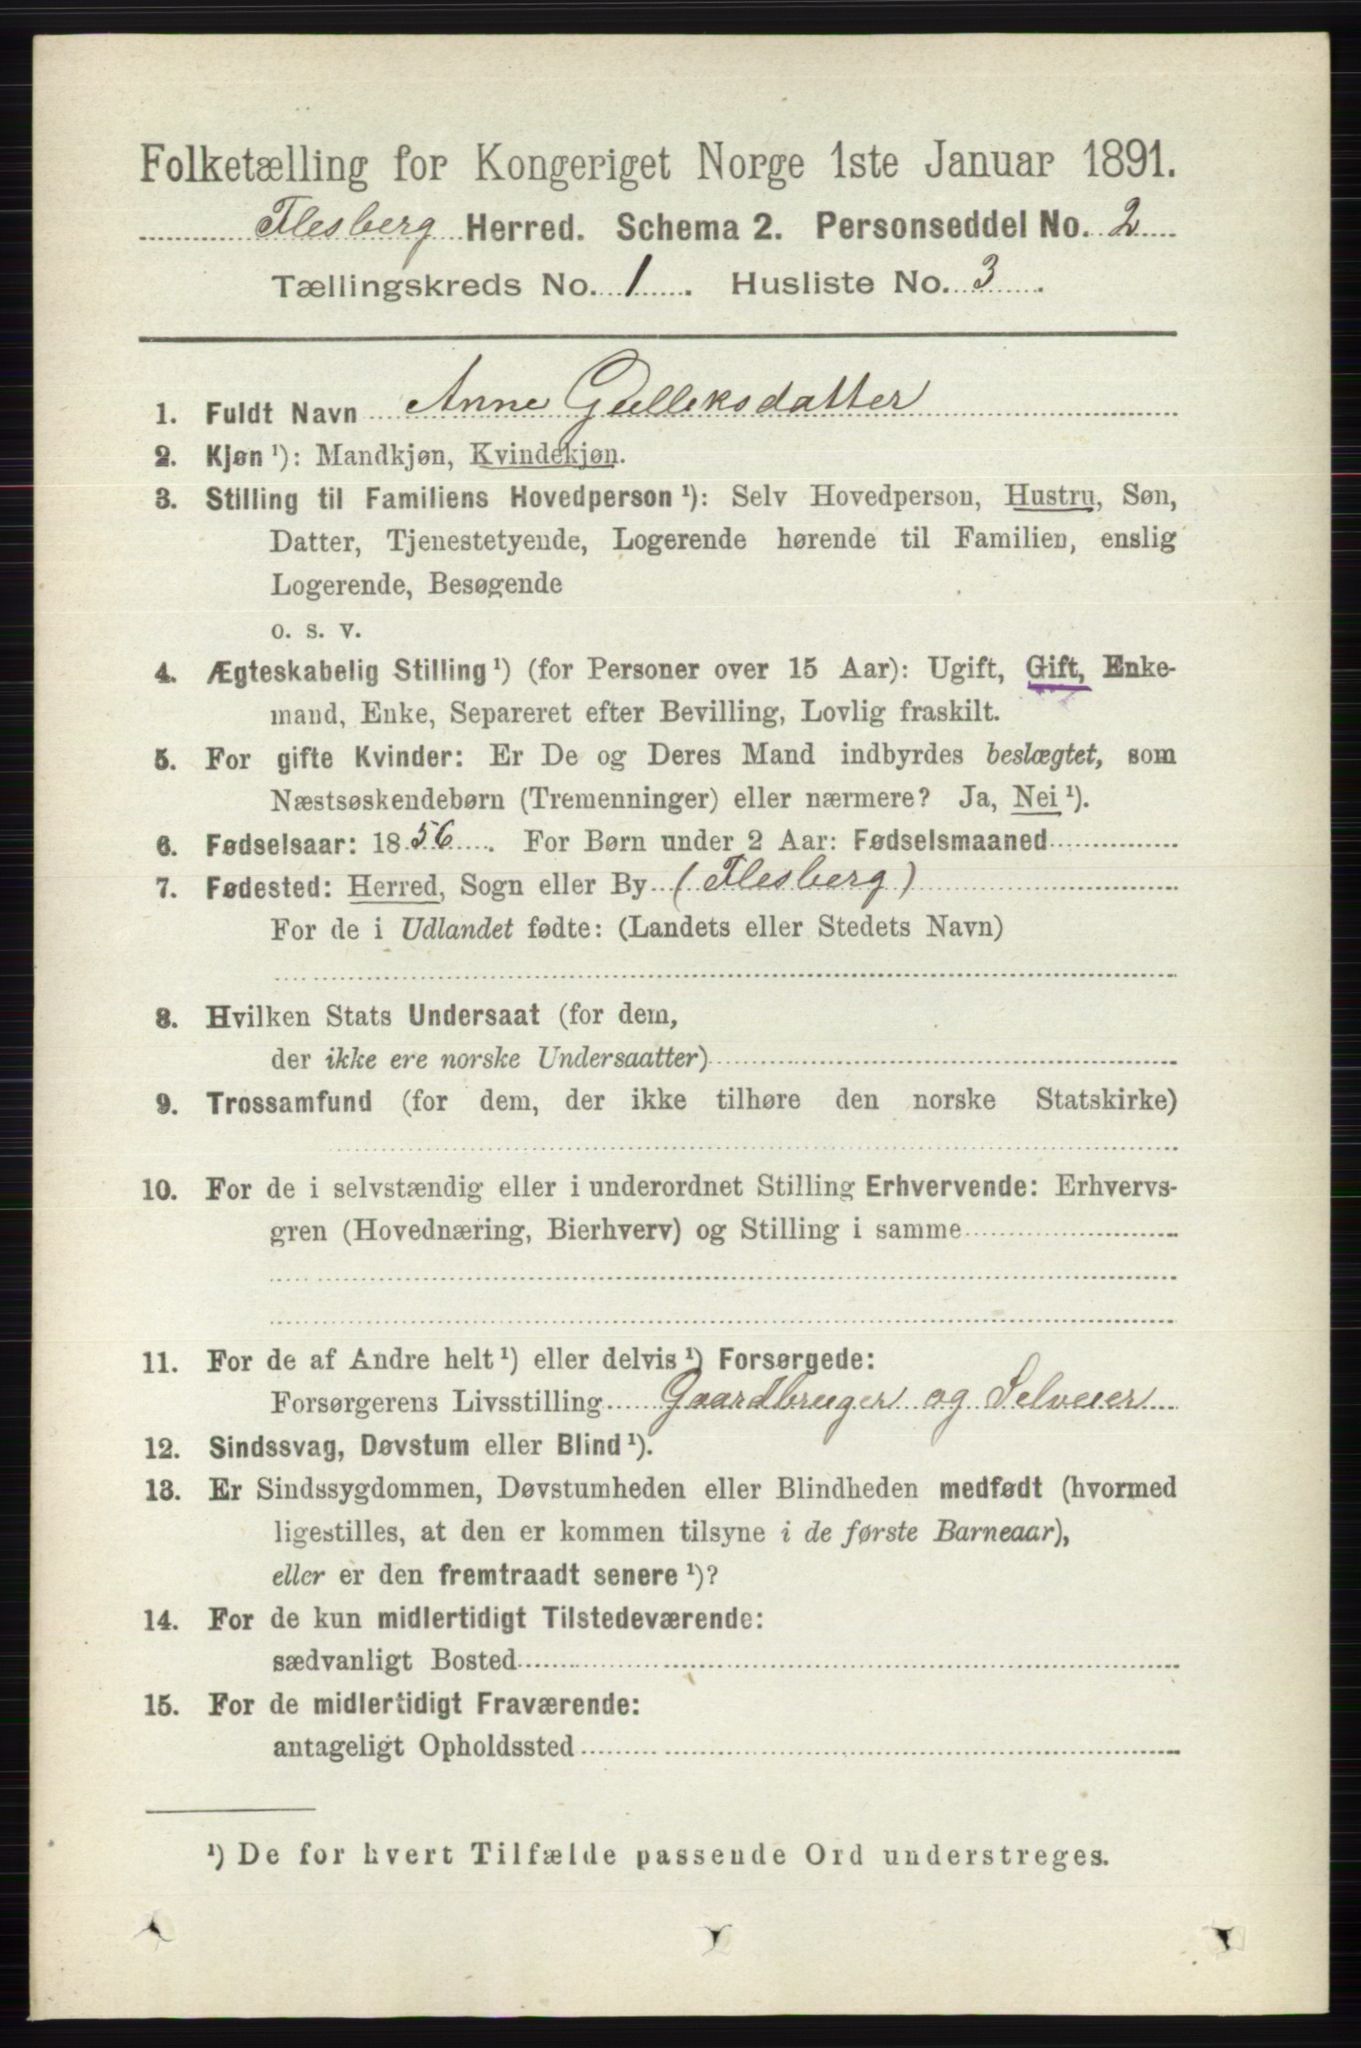 Folketælling for Kongeriget Norge 1ste Januar 1891.
Flesberg Herred. Schema 2. Personseddel No. 2
Tællingskreds No. 1. Husliste No. 3.
1. Fuldt Navn Anne Gulleksdatter
2. Kjøn ¹): Mandkjøn, Kvindekjøn.
3. Stilling til Familiens Hovedperson ¹): Selv Hovedperson, Hustru, Søn,
Datter, Tjenestetyende, Logerende hørende til Familien, enslig
Logerende, Besøgende
o. s. v.
4. Ægteskabelig Stilling ¹) (for Personer over 15 Aar): Ugift, Gift, Enke-
mand, Enke, Separeret efter Bevilling, Lovlig fraskilt.
5. For gifte Kvinder: Er De og Deres Mand indbyrdes beslægtet, som
Næstsøskendebørn (Tremenninger) eller nærmere? Ja, Nei ¹).
6. Fødselsaar: 1856. For Børn under 2 Aar: Fødselsmaaned
7. Fødested: Herred, Sogn eller By (Flesberg)
For de i Udlandet fødte: (Landets eller Stedets Navn)
8. Hvilken Stats Undersaat (for dem,
der ikke ere norske Undersaatter)
9. Trossamfund (for dem, der ikke tilhøre den norske Statskirke)
10. For de i selvstændig eller i underordnet Stilling Erhvervende: Erhvervs-
gren (Hovednæring, Bierhverv) og Stilling i samme
11. For de af Andre helt ¹) eller delvis ¹) Forsørgede:
Forsørgerens Livsstilling Gaardbruger og Selveier
12. Sindssvag, Døvstum eller Blind ¹).
13. Er Sindssygdommen, Døvstumheden eller Blindheden medfødt (hvormed
ligestilles, at den er kommen tilsyne i de første Barneaar),
eller er den fremtraadt senere ¹)?
14. For de kun midlertidigt Tilstedeværende:
sædvanligt Bosted
15. For de midlertidigt Fraværende:
antageligt Opholdssted
¹) De for hvert Tilfælde passende Ord understreges.